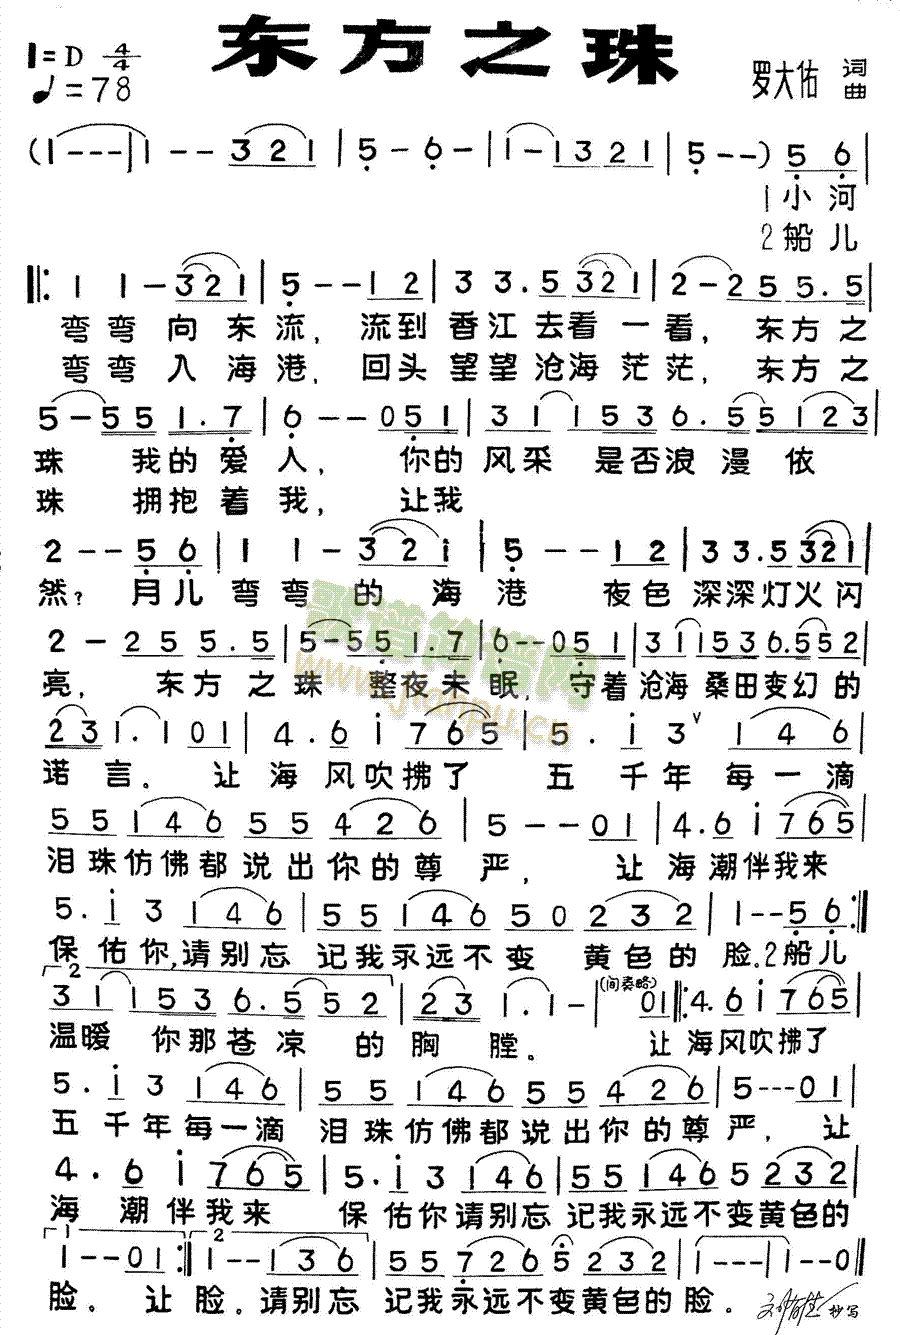 东方之珠
1=D 4/4
♩=78
罗大佑 词曲
(1---|1--321|5-6-|1-1321|5--)56|
1小河
2船儿
‖:11-321|5--12|333.5321|2-255.5|
弯弯向东流,流到香江去看一看,东方之
弯弯入海港,回头望望沧海茫茫,东方之
5-551.7|6--051|311536.55123|
珠 我的爱人, 你的风采 是否浪漫依
珠 拥抱着我, 让我
2--56|11-321|5--12|33.5321|
然?月儿弯弯的海港 夜色深深灯火闪
2-255.5|5-551.7|6--051|311536.552|
亮, 东方之珠 整夜未眠,守着沧海桑田变幻的
231.101|4.6i765|5.i3∨146|
诺言。让海风吹拂了 五千年每一滴
5514655426|5--01|4.6i765|
泪珠仿佛都说出你的尊严, 让海潮伴我来
5.i3146|5514650232|1--56:‖
保佑你,请别忘记我永远不变 黄色的脸.2船儿
2
311536.552|231.1-|(间奏略)01‖:4.6i765|
温暖 你那苍凉 的胸膛。 让海风吹拂了
5.i3146|5514655426|5---01|
五千年每一滴 泪珠仿佛都说出你的尊严,让
4.6i765|5.i3146|551465232|
海潮伴我来 保佑你请别忘记我永远不变黄色的
1 2
1--01:‖1--136|557266232|1---|1--0‖
脸。让脸。请别忘 记我永远不变黄色的脸。
抄写
歌谱简谱网
www.jianpu.cn